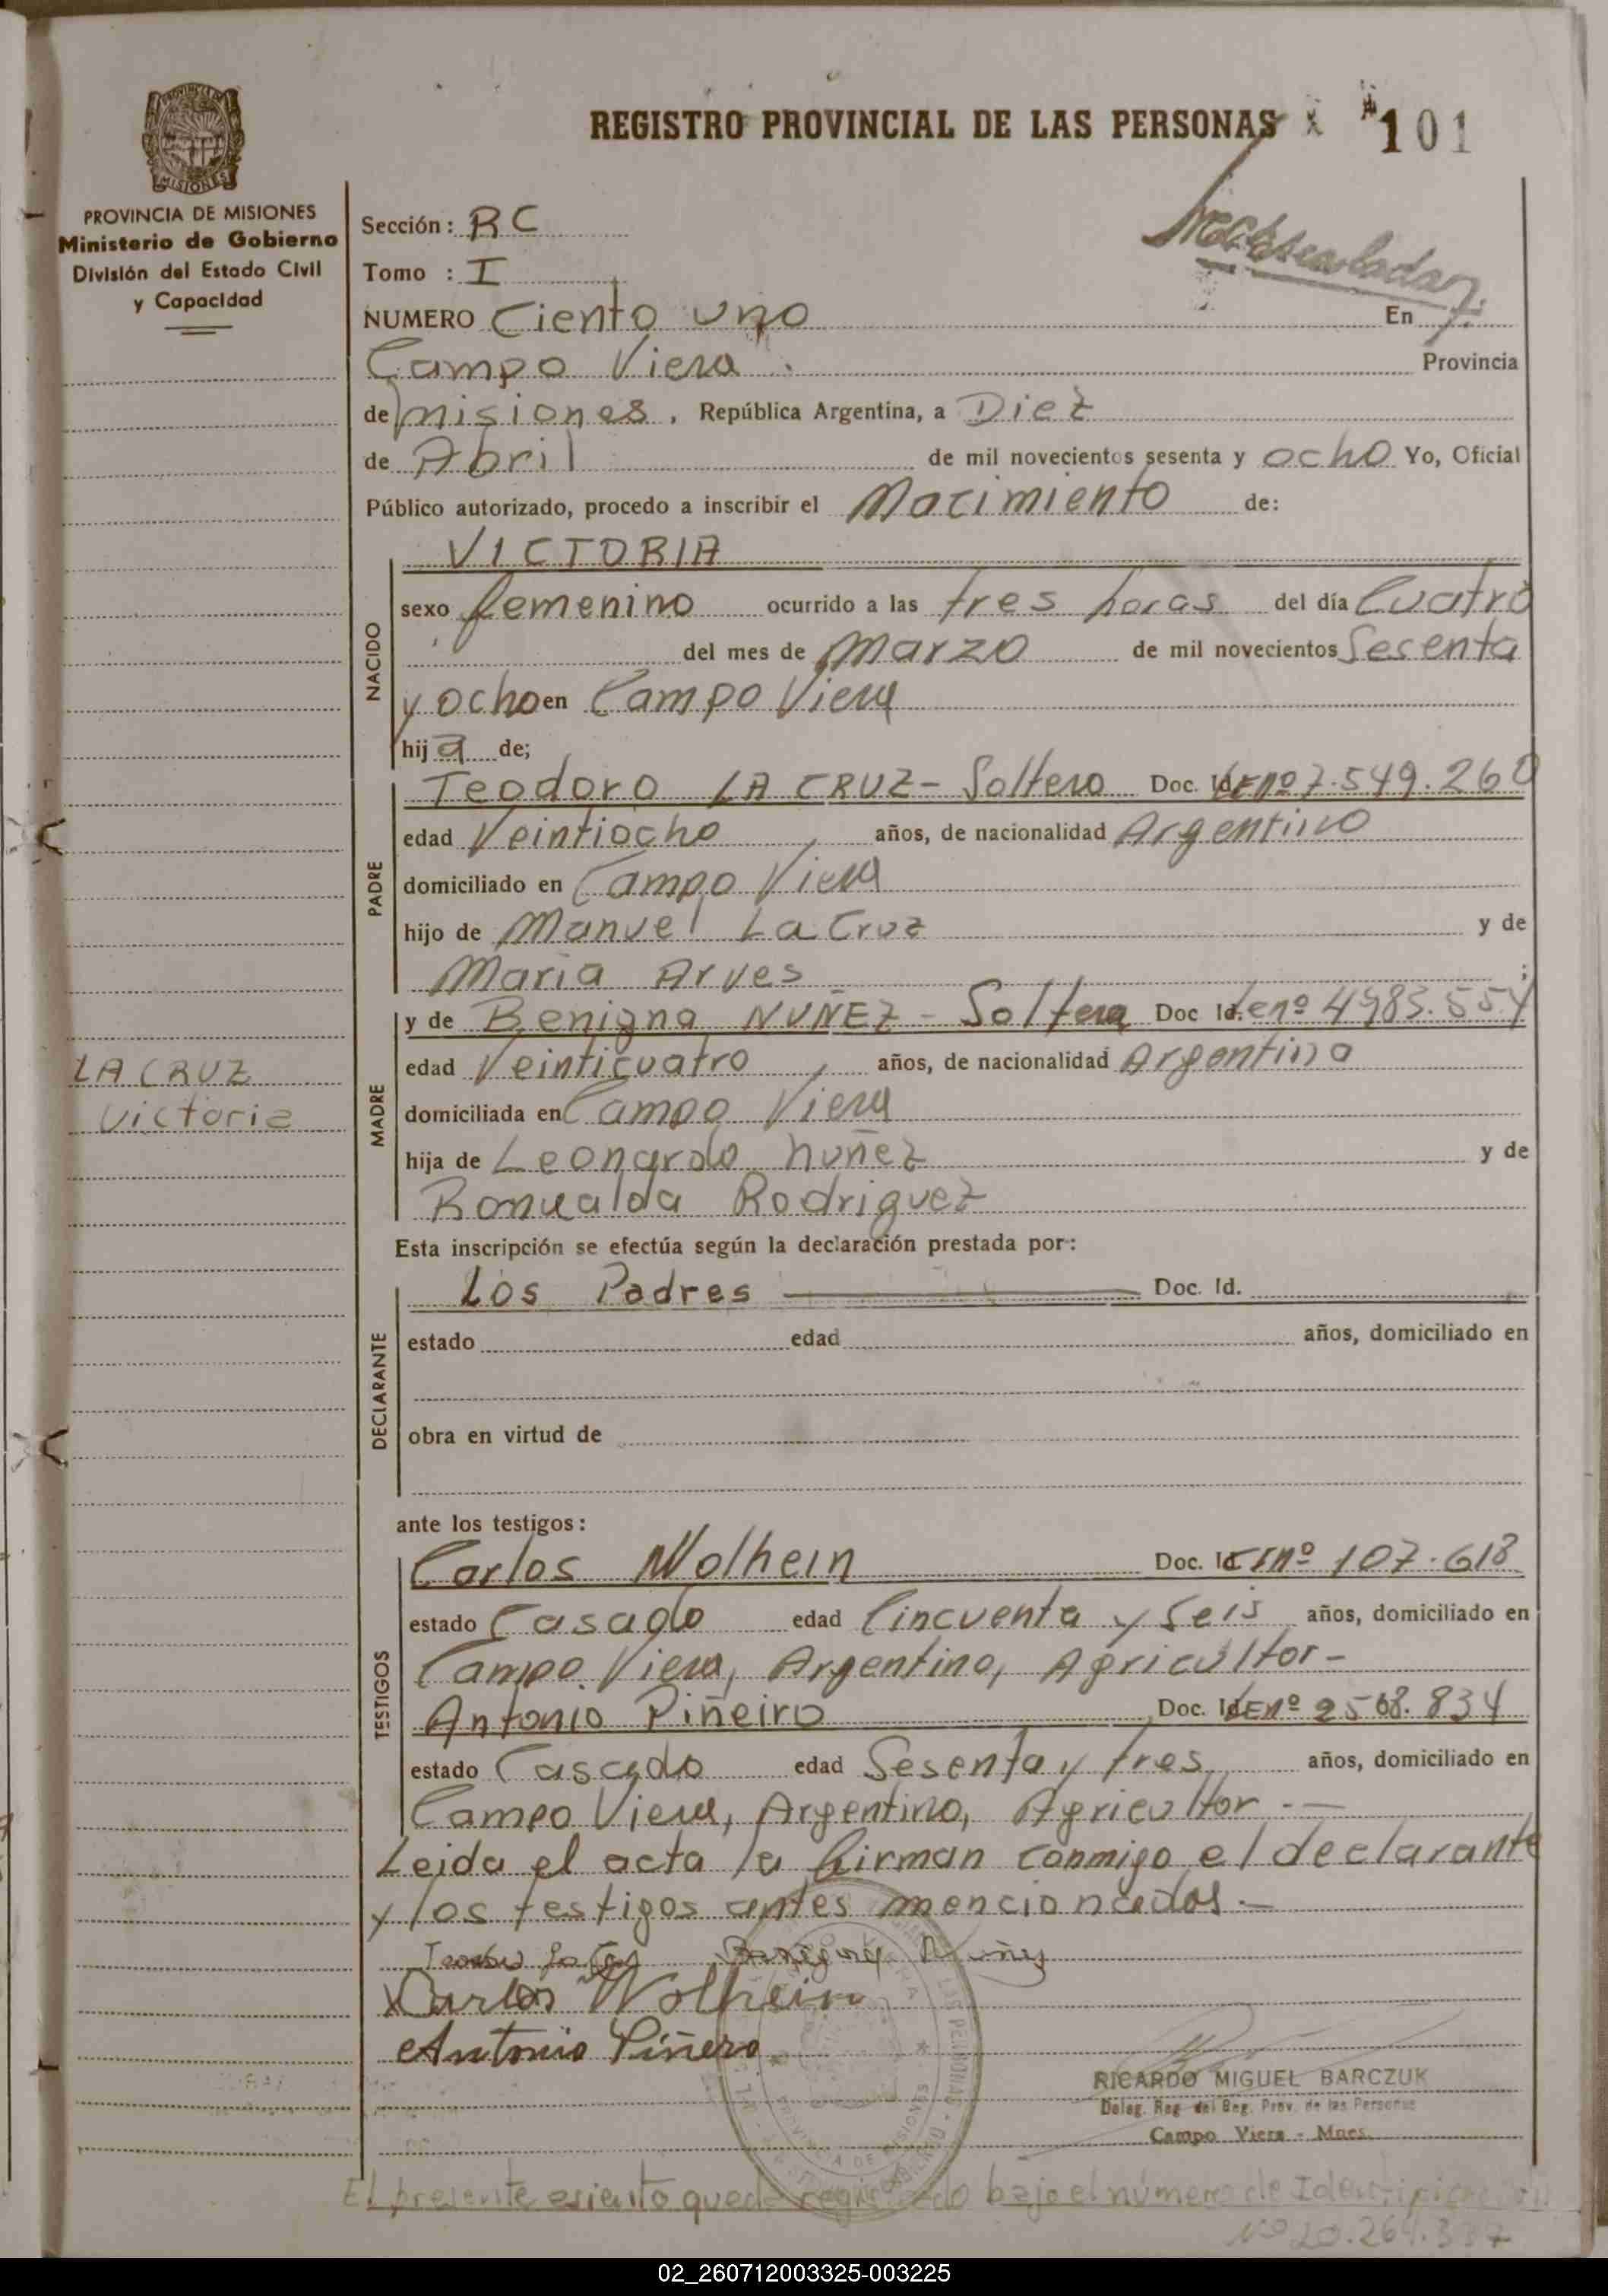 REGISTRO PROVINCIAL DE LAS PERSONAS
101
MISIONES
PROVINCIA DE MISIONES
Ministerio de Gobierno
División del Estado Civil
y Capacidad
Sección: RC
Tomo : I
NUMERO Ciento uno En
Campo Viera Provincia
de misiones, República Argentina, a Diez
de Abril de mil novecientos sesenta y ocho Yo, Oficial
Público autorizado, procedo a inscribir el Nacimiento de:
VICTORIA
NACIDO
sexo femenino ocurrido a las tres horas del día Cuatro
del mes de marzo de mil novecientos Sesenta
y ocho en Campo Viera
hija de;
PADRE
Teodoro LA CRUZ - Soltero Doc. Id. LE nº 7.549.260
edad Veintiocho años, de nacionalidad Argentino
domiciliado en Campo Viera
hijo de Manuel La Cruz y de
Maria Arves ;
MADRE
y de Benigna NUÑEZ - Soltera Doc Id. nº 4983.554
edad Veinticuatro años, de nacionalidad Argentina
domiciliada en Campo Viera
hija de Leonardo nuñez y de
Romualda Rodriguez
LA CRUZ
Victoria
Esta inscripción se efectúa según la declaración prestada por:
DECLARANTE
Los Padres Doc. Id.
estado edad años, domiciliado en
obra en virtud de
ante los testigos:
TESTIGOS
Carlos Wolhein Doc. Id. nº 107.618
estado Casado edad Cincuenta y Seis años, domiciliado en
Campo Viera, Argentino, Agricultor -
Antonio Piñeiro Doc. Id. LE nº 2568.834
estado Casado edad Sesenta y tres años, domiciliado en
Campo Viera, Argentino, Agricultor .-
Leida el acta la firman conmigo el declarante
y los testigos antes mencionados.-
Benigna Nuñez
Carlos Wolhein
Antonio Piñero
RICARDO MIGUEL BARCZUK
Deleg. Reg. del Reg. Prov. de las Personas
Campo Viera - Mnes.
El presente asiento queda registrado bajo el número de Identificación
Nº 20.264.337
02_260712003325-003225